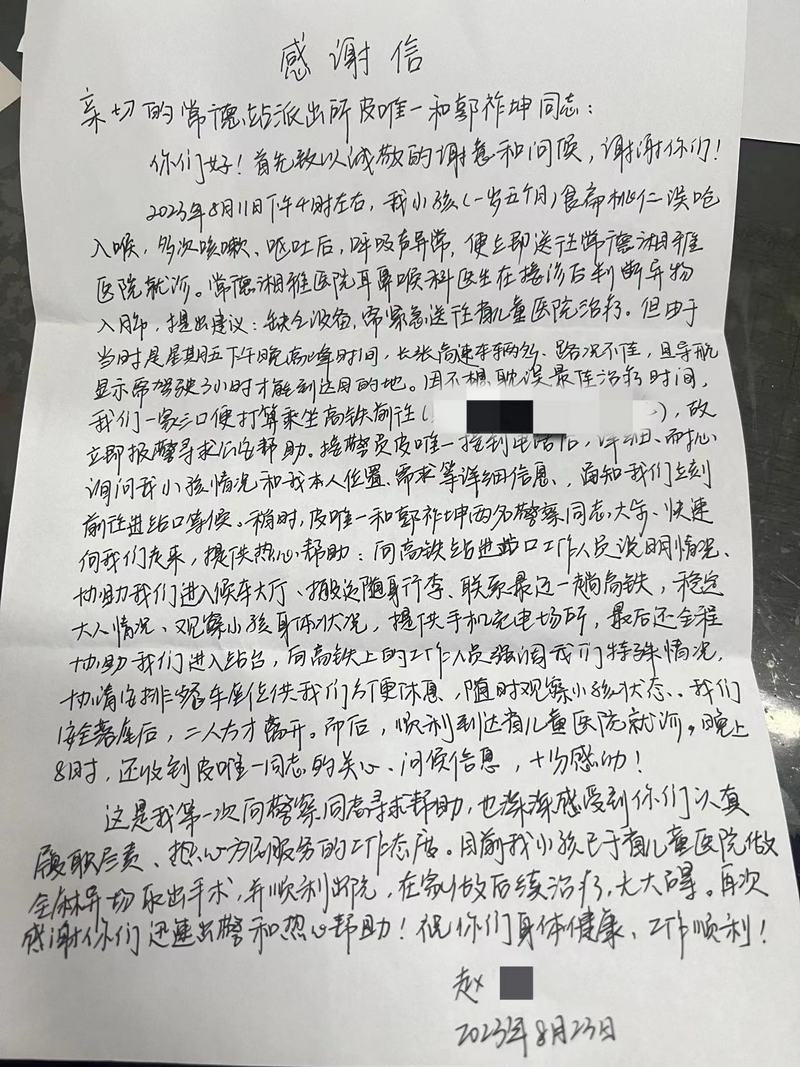 感谢信
亲切的常德站派出所皮唯一和郭祚坤同志：
你们好！首先致以诚敬的谢意和问候，谢谢你们！
2023年8月11日下午4时左右，我小孩（一岁五个月）食扁桃仁误呛
入喉，多次咳嗽、呕吐后，呼吸声异常，便立即送往常德湘雅
医院就诊。常德湘雅医院耳鼻喉科医生在接诊后判断异物
入肺，提出建议：缺乏设备，需紧急送往省儿童医院治疗。但由于
当时是星期五下午晚高峰时间，长张高速车辆多、路况不佳，且导航
显示需驾驶3小时才能到达目的地。因不想耽误最佳治疗时间，
我们一家三口便打算乘坐高铁前往（），故
立即报警寻求公安帮助。接警员皮唯一接到电话后，详细、耐心
询问我小孩情况和我本人位置、需求等详细信息，通知我们立刻
前往进站口等候。稍时，皮唯一和郭祚坤两名警察同志大步、快速
向我们走来，提供热心帮助：向高铁站进站口工作人员说明情况、
协助我们进入候车大厅、搬运随身行李、联系最近一趟高铁，稳定
大人情况、观察小孩身体状况，提供手机充电场所，最后还全程
协助我们进入站台，向高铁上的工作人员强调我们特殊情况，
协请安排餐车座位供我们方便休息，随时观察小孩状态、我们
安全落座后，二人方才离开。而后，顺利到达省儿童医院就诊。晚上
8时，还收到皮唯一同志的关心、问候信息，十分感动！
这是我第一次向警察同志寻求帮助，也深深感受到你们认真
履职尽责、热心为民服务的工作态度。目前我小孩已于省儿童医院做
全麻异物取出手术，并顺利出院，在家做后续治疗，无大碍。再次
感谢你们迅速出警和热心帮助！祝你们身体健康、工作顺利！
赵
2023年8月23日